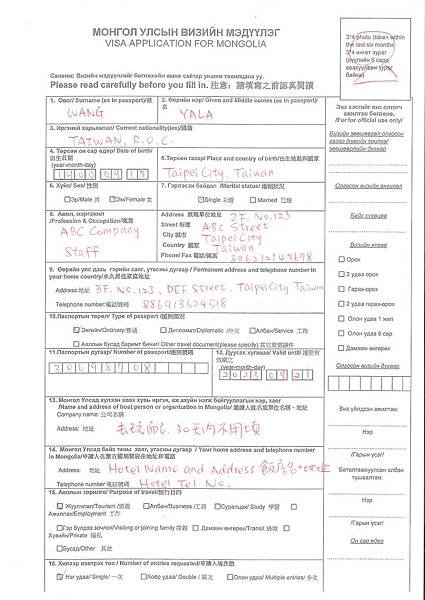 МОНГОЛ УЛСЫН ВИЗИЙН МЭДҮҮЛЭГ
VISA APPLICATION FOR MONGOLIA
3*4 photo (taken within
the last six months)
3*4 өнгөт зураг
(сүүлийн 6 сард
авахуулсан зураг
байна)
Санамж: Визийн мэдүүлгийг бөглөхийн өмнө сайтар уншиж танилцана уу.
Please read carefully before you fill in. 注意：請填寫之前認真閱讀
1. Овог/ Surname (as in passport)/姓
WANG
2. Өөрийн нэр/ Given and Middle names (as in passport)/
名
YALA
3. Иргэний харьяалал/ Current nationality(ies)國籍
TAIWAN, R.O.C.
4. Төрсөн он сар өдөр/ Date of birth/
出生日期
(year-month-day)
19000515
5. Төрсөн газар/ Place and country of birth/出生地點和國家
Taipei City, Taiwan
6. Хүйс/ Sex/ 性別
Эр/Male 男 Эм/Female 女
7. Гэрлэсэн байдал /Marital status/ 婚姻狀況
Single 未婚 Married 已婚
8. Ажил, мэргэжил
/Profession & Occupation/職業
ABC Company
Staff
Address 就職單位地址 2F. No.123
Street 街道 ABC Street
City 城市 Taipei City
Country 國家 Taiwan
Phone/ Fax 電話/傳真 886212345678
9. Өөрийн улс дахь гэрийн хаяг, утасны дугаар / Permanent address and telephone number in
your home country/永久居住家庭地址
Address:地址 3F. No.123, DEF Street, Taipei City Taiwan
Telephone number:電話號碼 886913624518
10.Паспортын төрөл/ Type of passport/護照類別
Энгийн/Ordinary/普通 Дипломат/Diplomatic /外交 Албан/Service 工務
Аяллын бусад баримт бичиг/ Other travel document(please specify) 其它旅遊證件
11.Паспортын дугаар/ Number of passport/護照號碼
306948708
12. Дуусах хугацаа/ Valid until/ 護照有
效期之
(year-month-day)
20230921
13. Монгол Улсад хүлээн авах хувь иргэн, аж ахуйн нэгж байгууллагын нэр, хаяг
/Name and address of host person or organization in Mongolia/ 邀請人姓名或單位名稱、地址
Company name: 公司名稱
Address: 地址
去玩而已, 30天內不用填
14. Монгол Улсад байх таны хаяг, утасны дугаар / Your address and telephone number
in Mongolia/申請人在蒙古國期間居住地址和電話
Address: 地址 Hotel Name and Address 飯店名+地址
Telephone number:電話號碼 Hotel Tel. No.
15. Аяллын зорилго/ Purpose of travel/旅行目的
Жуулчлал/Tourism /旅遊 Албан/Business 工作 Суралцах/ Study 學習
Ажиллах/Employment 工作
Гэр бүлдээ зочлох/Visiting or joining family 探親 Дамжин өнгөрөх/Transit 過境
Хувийн/Private 隱私
Бусад/Other 其他
16. Хилээр нэвтрэх тоо / Number of entries requested/申請入境次數
Нэг удаа/ Single/ 一次 Хоёр удаа/ Double / 兩次 Олон удаа/ Multiple entries/ 多次
Энэ хэсгийг виз олгогч
ажилтан бөглөнө.
/For official use only/
Визийн зөвшөөрөл олгосон
Олгосон визийн ангилал
Байх хугацаа
Визийн хэлбэр
Орох
2 удаа орох
Гарах-орох
2 удаа гарах-орох
Олон удаа 1 жил
Олон удаа 6 сар
Дамжин өнгөрөх
Олгосон визийн дугаар
Виз үйлдсэн ажилтан:
Нэр
/Гарын үсэг/
Баталгаажуулсан албан
тушаалтан:
Нэр
/Гарын үсэг/
Он сар өдөр